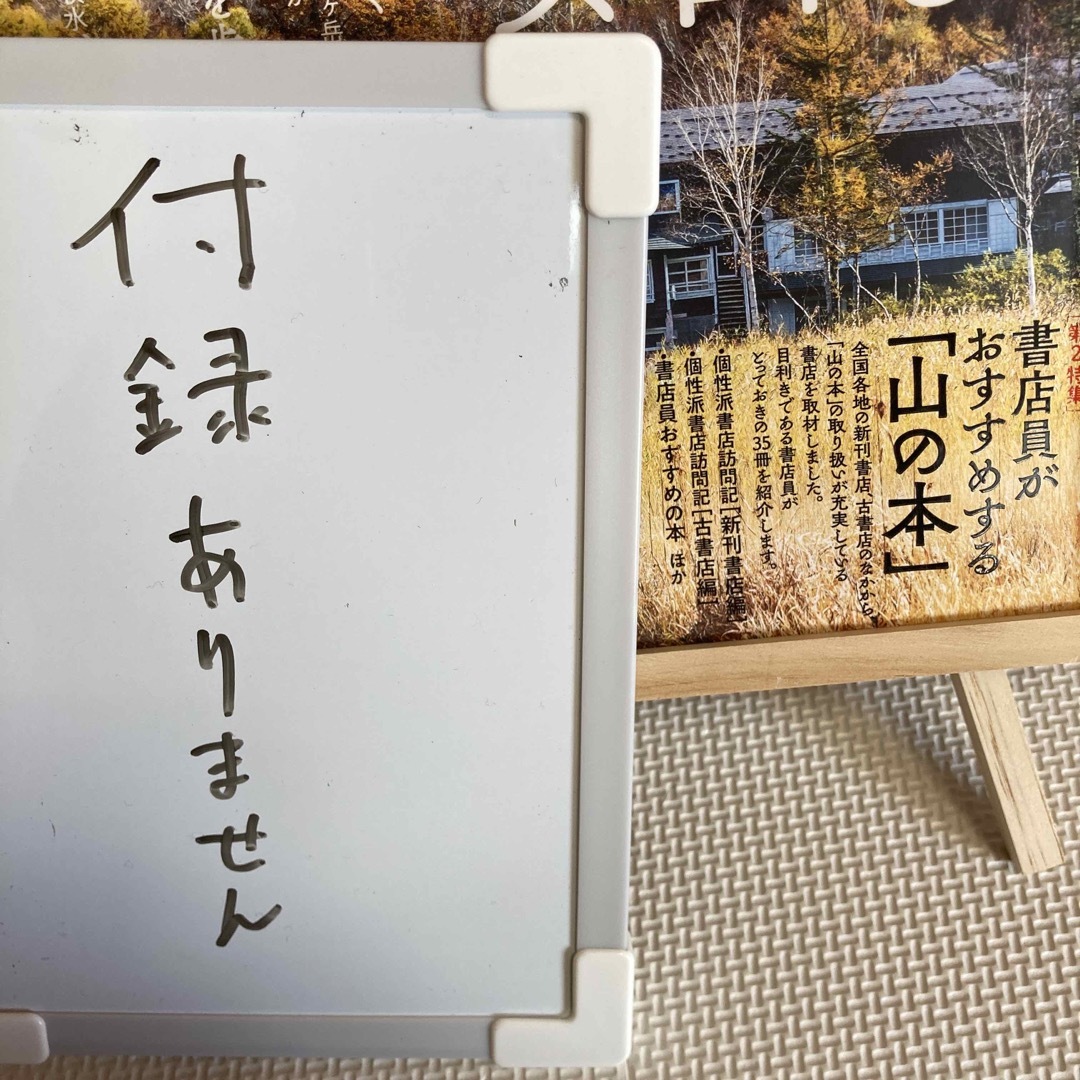 付録ありません
第2特集
書店員が
おすすめする
「山の本」
全国各地の新刊書店、古書店のなかから、
「山の本」の取り扱いが充実している
書店を取材しました。
目利きである書店員が
とっておきの35冊を紹介します。
・個性派書店訪問記[新刊書店編]
・個性派書店訪問記[古書店編]
・書店員おすすめの本 ほか